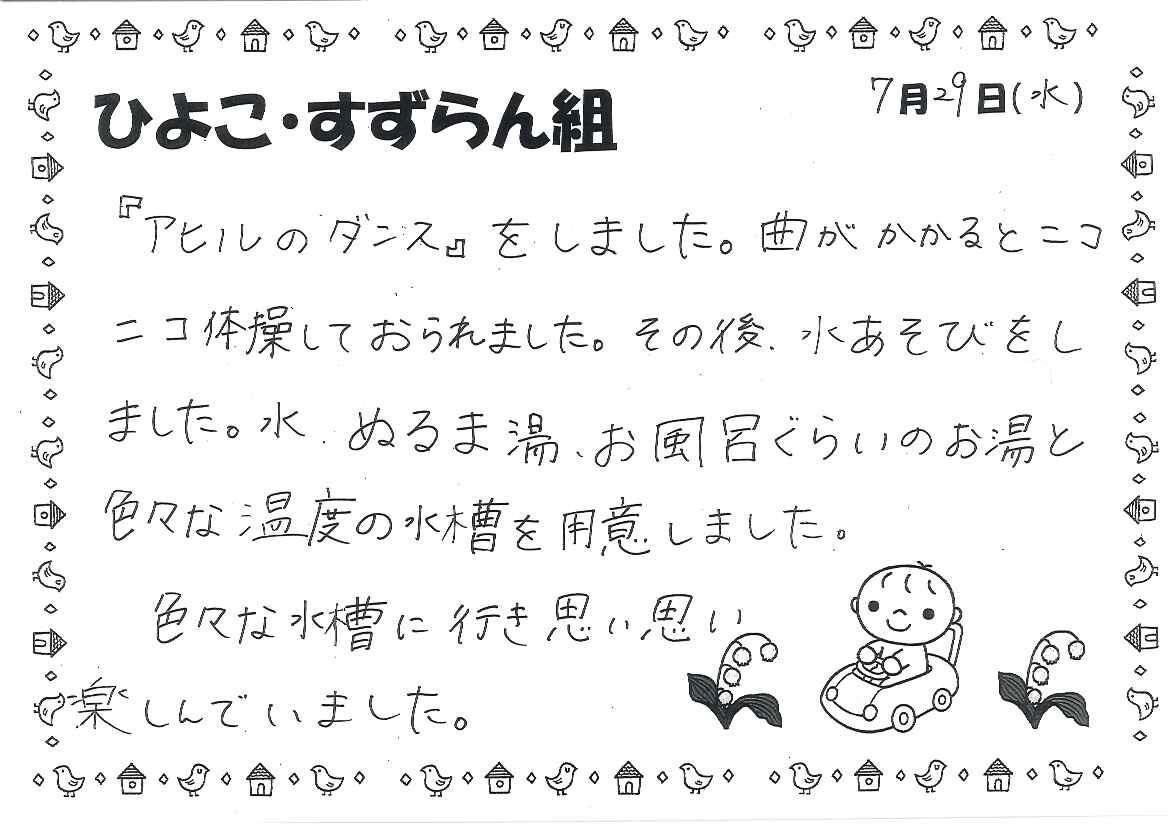 ひよこ・すずらん組
7月29日(水)
『アヒルのダンス』をしました。曲がかかるとニコ
ニコ体操しておられました。その後、水あそびをし
ました。水、ぬるま湯、お風呂ぐらいのお湯と
色々な温度の水槽を用意しました。
色々な水槽に行き思い思い
楽しんでいました。